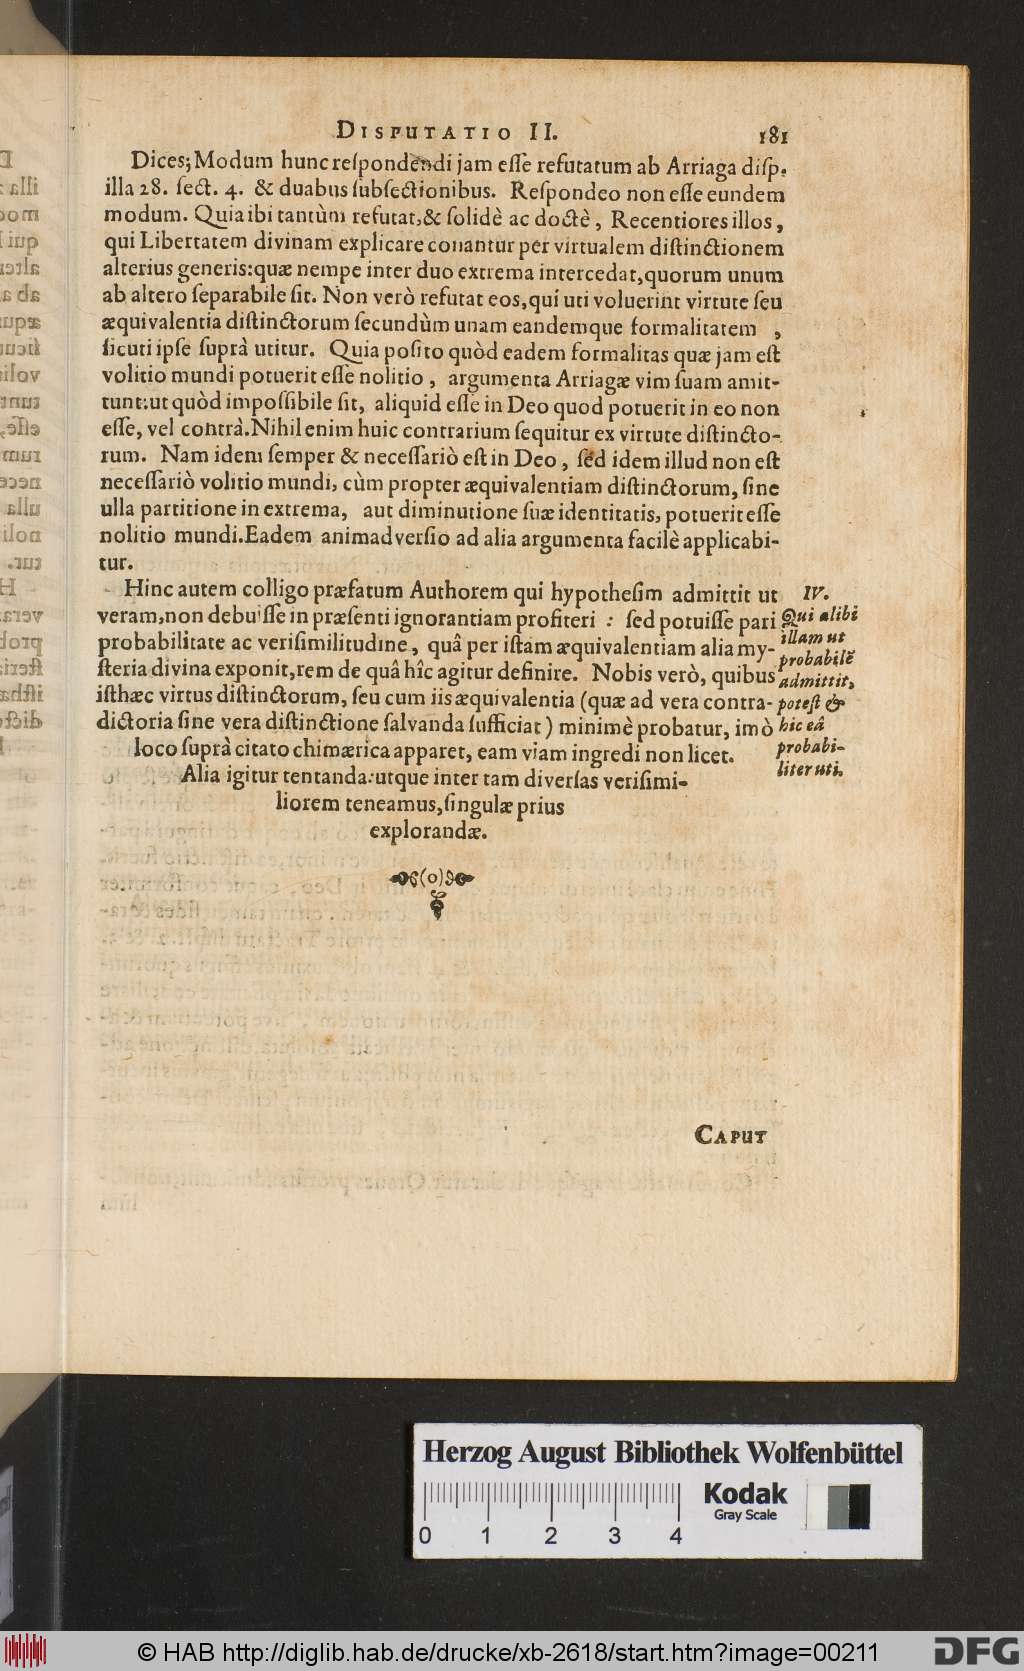 DISPUTATIO II. 181
Dices; Modum hunc reſpondendi jam eſſe refutatum ab Arriaga diſp.
illa 28. ſect. 4. & duabus ſubſectionibus. Reſpondeo non eſſe eundem
modum. Quia ibi tantùm refutat, & ſolidè ac doctè, Recentiores illos,
qui Libertatem divinam explicare conantur per virtualem diſtinctionem
alterius generis: quæ nempe inter duo extrema intercedat, quorum unum
ab altero ſeparabile ſit. Non verò refutat eos, qui uti voluerint virtute ſeu
æquivalentia diſtinctorum ſecundùm unam eandemque formalitatem,
ſicuti ipſe ſuprà utitur. Quia poſito quòd eadem formalitas quæ jam eſt
volitio mundi potuerit eſſe nolitio, argumenta Arriagæ vim ſuam amit-
tunt: ut quòd impoſſibile ſit, aliquid eſſe in Deo quod potuerit in eo non
eſſe, vel contrà. Nihil enim huic contrarium ſequitur ex virtute diſtincto-
rum. Nam idem ſemper & neceſſariò eſt in Deo, ſed idem illud non eſt
neceſſariò volitio mundi, cùm propter æquivalentiam diſtinctorum, ſine
ulla partitione in extrema, aut diminutione ſuæ identitatis, potuerit eſſe
nolitio mundi. Eadem animadverſio ad alia argumenta facilè applicabi-
tur.
Hinc autem colligo præfatum Authorem qui hypotheſim admittit ut
veram, non debuiſſe in præſenti ignorantiam profiteri : ſed potuiſſe pari
probabilitate ac veriſimilitudine, quâ per iſtam æquivalentiam alia my-
ſteria divina exponit, rem de quâ hîc agitur definire. Nobis verò, quibus
iſthæc virtus diſtinctorum, ſeu cum iis æquivalentia (quæ ad vera contra-
dictoria ſine vera diſtinctione ſalvanda ſufficiat) minimè probatur, imò
loco ſuprà citato chimærica apparet, eam viam ingredi non licet.
Alia igitur tentanda: utque inter tam diverſas veriſimi-
liorem teneamus, ſingulæ prius
explorandæ.
IV.
Qui alibi
illam ut
probabilē
admittit,
poteſt &
hic eâ
probabi-
liter uti.
(o)
CAPUT
Herzog August Bibliothek Wolfenbüttel
Kodak
Gray Scale
0 1 2 3 4
© HAB http://diglib.hab.de/drucke/xb-2618/start.htm?image=00211
DFG